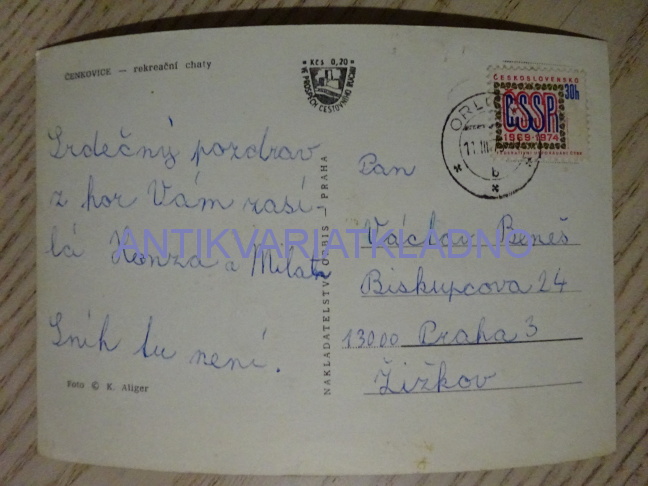 ČENKOVICE — rekreační chaty
Kčs 0,20
VE PROSPĚCH CESTOVNÍHO RUCHU
Srdečný pozdrav
z hor Vám zasí-
lá Honza a Milata
Sníh tu není.
Foto © K. Aliger
NAKLADATELSTVÍ ORBIS - PRAHA
ČESKOSLOVENSKO
30h
ČSSR
1969-1974
ORLI
11.III.
b
Pan
Václav Beneš
Biskupcova 24
13000 Praha 3
Žižkov
ANTIKVARIATKLADNO